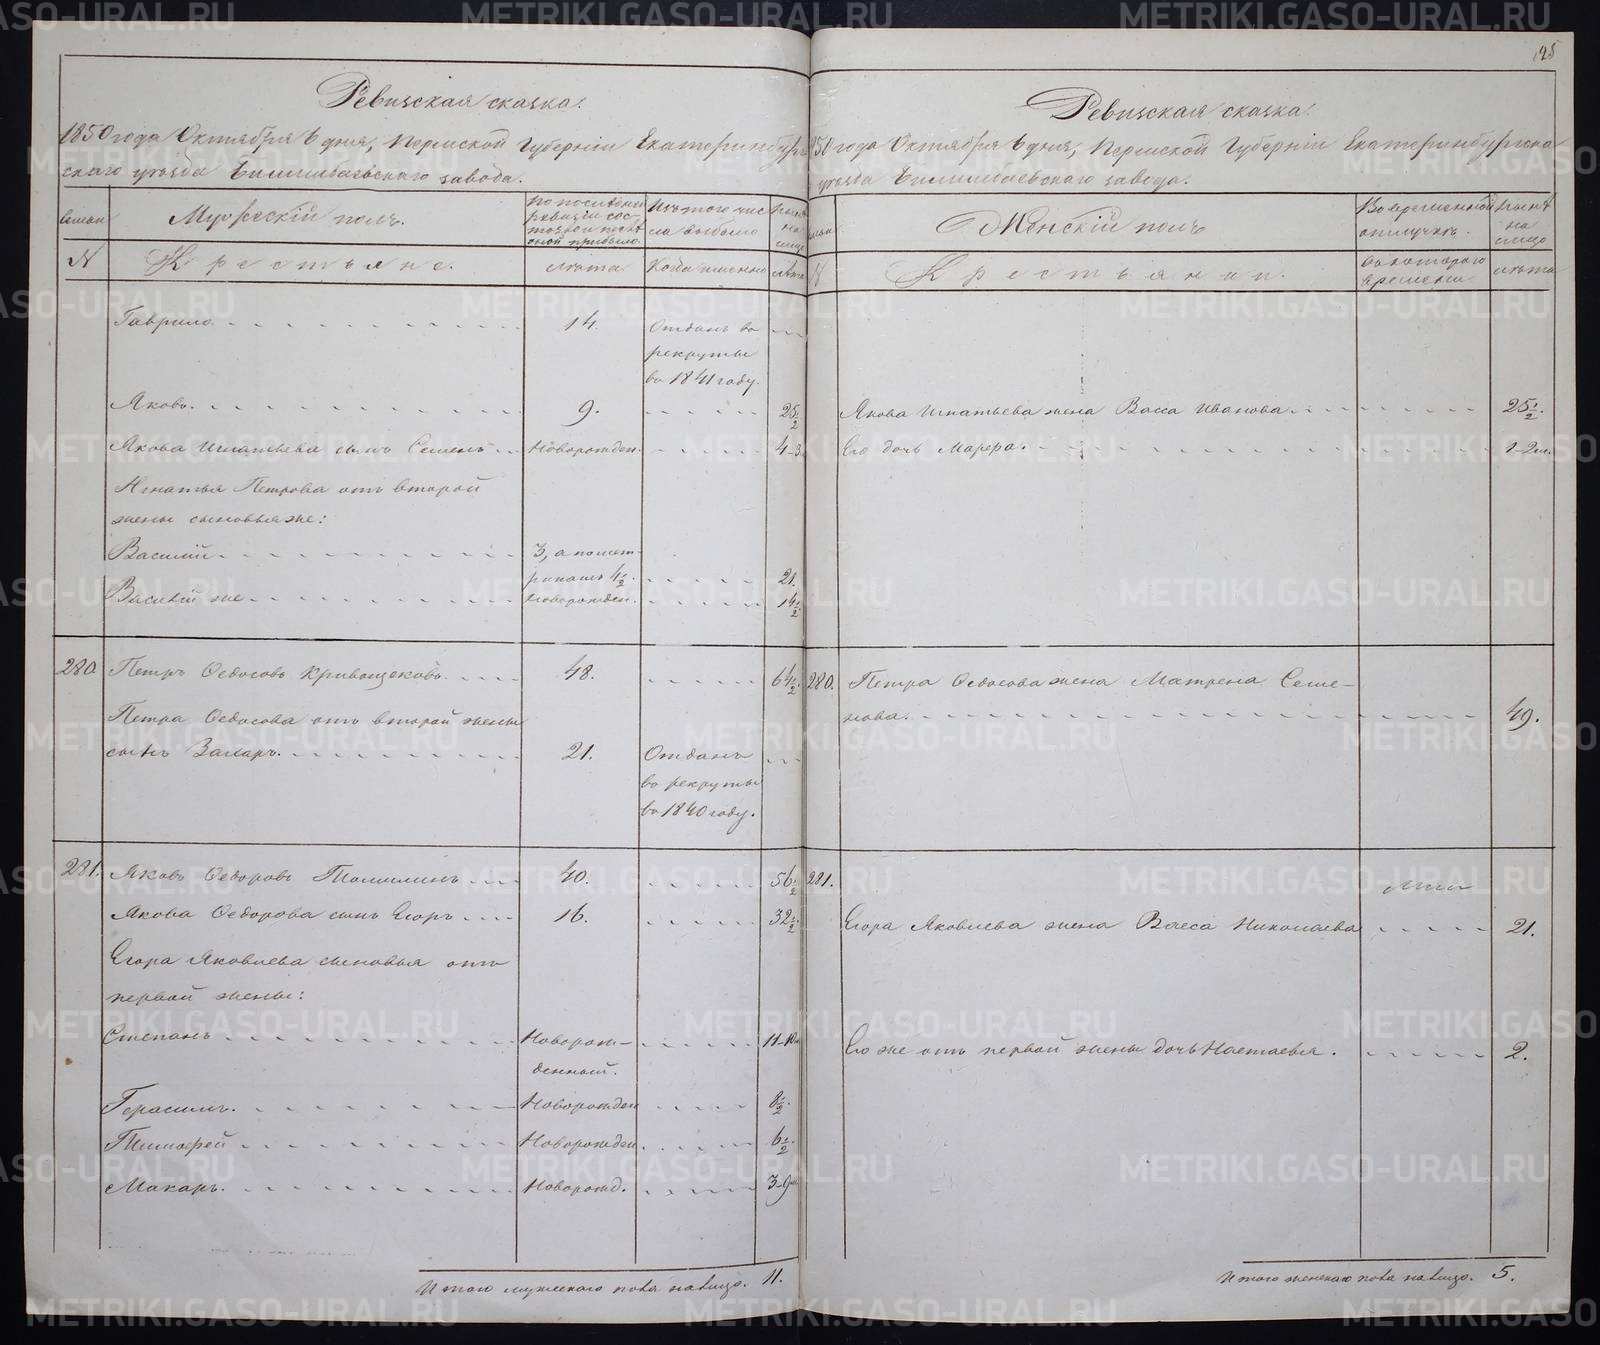 125
Ревизская сказка.
1850 года Октября 6 дня, Пермской Губерніи Екатеринбург
скаго уѣзда Билимбаевскаго завода.
Семьи
Мужескій полъ.
По последней
ревизіи сос-
тояло и послѣ
оной прибыло.
Изъ того чис
ла выбыло
Нынѣ
на
лицо
N
Крестьяне.
лѣта
Когда именно
лѣта
Гаврило
14.
Отданъ во
рекруты
въ 1841 году.
Яковъ.
9.
25 1/2
Якова Игнатьева сынъ Семенъ
Новорожден.
4-3
Игнатья Петрова отъ второй
жены сыновья же:
Василій
3, а по мет-
рикамъ 4 1/2.
21.
Василій же
Новорожден.
14 1/2
280.
Петръ Ѳедосовъ Кривощековъ.
48.
64 1/2.
Петра Ѳедосова отъ второй жены
сынъ Захаръ.
21.
Отданъ
въ рекруты
въ 1840 году.
281.
Яковъ Ѳедоровъ Томилинъ
40.
56 1/2
Якова Ѳедорова сынъ Егоръ
16.
32 1/2.
Егора Яковлева сыновья отъ
первой жены:
Степанъ
Новорож-
денный.
11-10м
Герасимъ.
Новорожден
8 1/2.
Тимофей
Новорожден.
6 1/2.
Макаръ.
Новорожд.
3-9м
Итого мужескаго пола налицо. 11.
Ревизская сказка.
850 года Октября 6 дня, Пермской Губерніи Екатеринбургска
уѣзда Билимбаевскаго завода.
Женскій полъ
Во временной
отлучкѣ.
Нынѣ
на
лицо
N
Крестьянки.
Съ котораго
времени
лѣта
Якова Игнатьева жена Васса Иванова
25 1/2.
Его дочь Марфа.
1-2м.
280.
Петра Ѳедосова жена Матрена Семе-
нова.
49.
281.
лѣта
Егора Яковлева жена Васса Николаева
21.
Его же отъ первой жены дочь Настасья.
2.
Итого женскаго пола налицо. 5.
METRIKI.GASO-URAL.RU